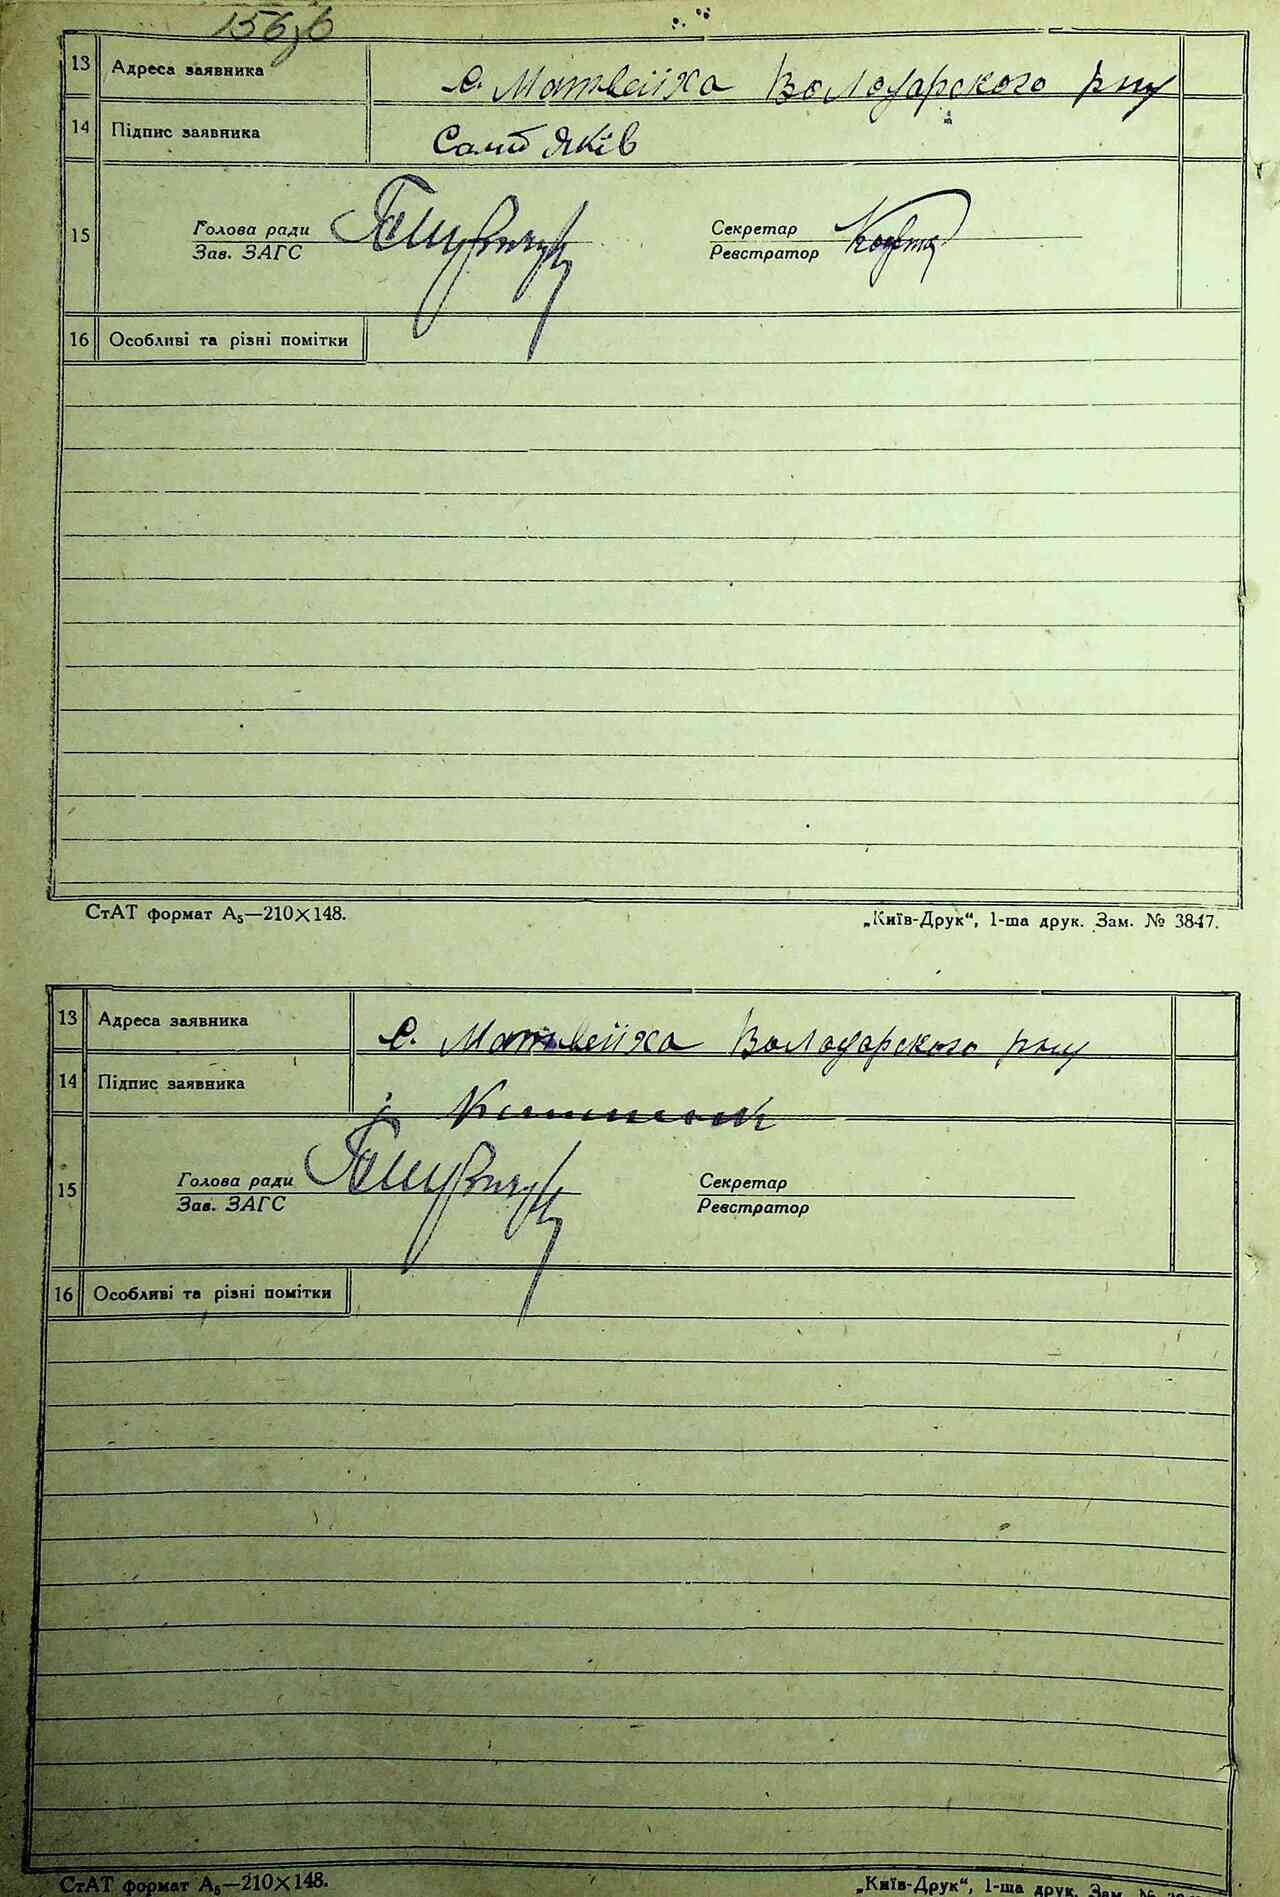 156
13 Адреса заявника с. Матвеїха Володарского р-ну
14 Підпис заявника Яків
15 Голова ради Секретар
Зав. ЗАГС Реєстратор
16 Особливі та різні помітки
СтАТ формат А₅—210×148. „Київ-Друк“, 1-ша друк. Зам. № 3847.
13 Адреса заявника с. Матвеїха Володарского р-ну
14 Підпис заявника
15 Голова ради Секретар
Зав. ЗАГС Реєстратор
16 Особливі та різні помітки
СтАТ формат А₅—210×148. „Київ-Друк“, 1-ша друк. Зам. №